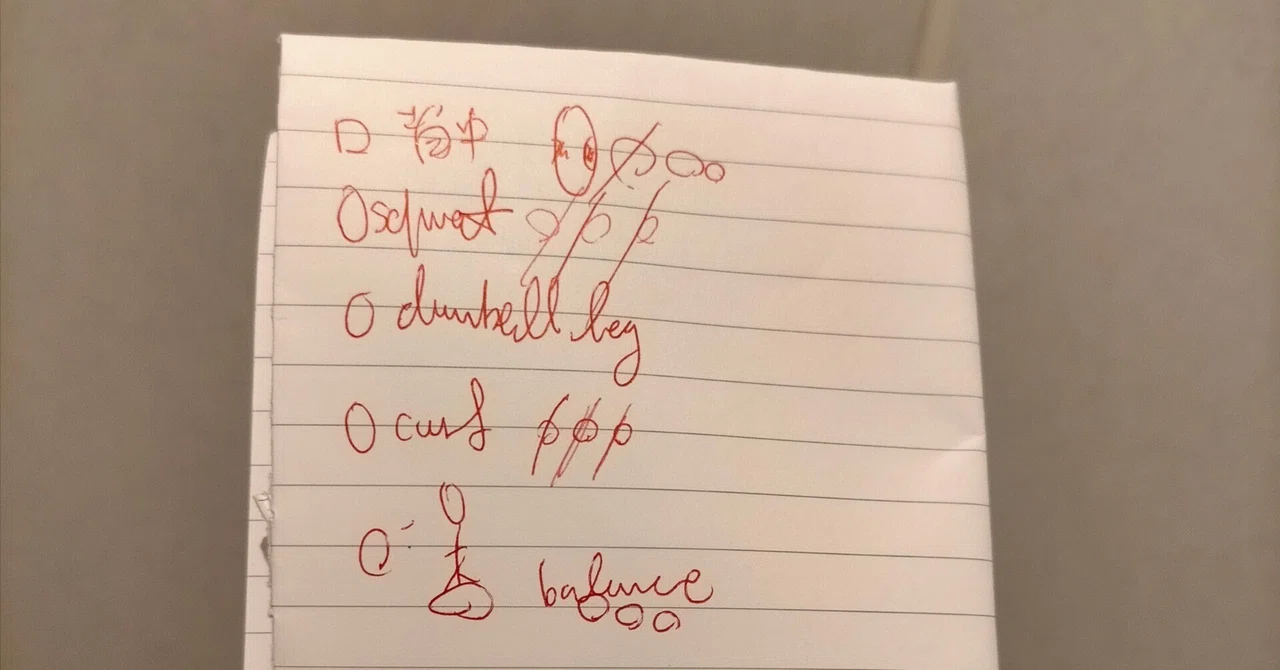 squat
dumbell leg
curl
balance